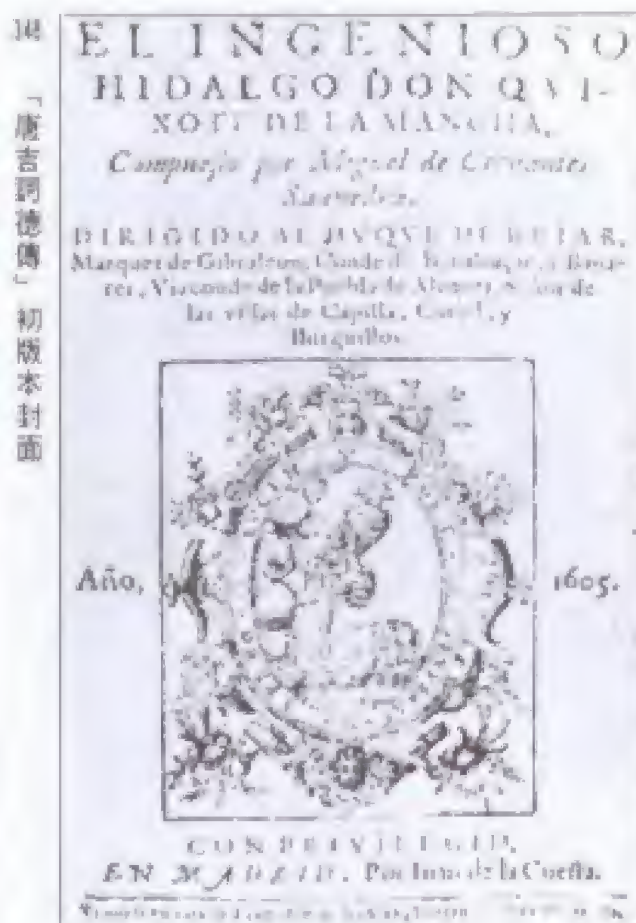 「唐吉訶德傳」初版本封面
EL INGENIOSO
HIDALGO DON QVI-
XOTE DE LA MANCHA,
Compuesto por Miguel de Cervantes
Saavedra.
DIRIGIDO AL DVQVE DE BEIAR,
Marques de Gibraleon, Conde de
Vizconde de la Puebla de Alcozer, Señor de
las villas de Capilla, Curiel, y
Burguillos.
Año, 1605.
CON PRIVILEGIO,
EN MADRID, Por Iuan de la Cuesta.